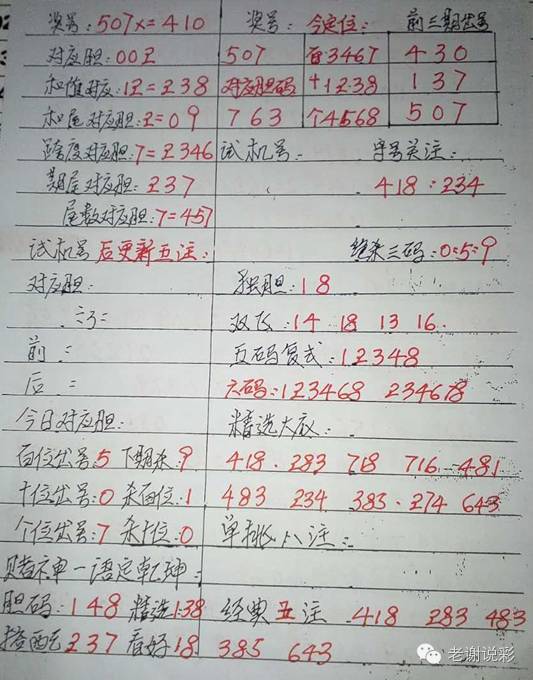 奖号:507x=410 奖号: 今定位: 前三期出号
对应胆:00Z 507 百3467 430
和值对应:1Z=Z38 对应胆码 十1238 137
和尾对应胆:Z=09 763 个4568 507
跨度对应胆:7=2346 试机号: 字号关注:
期尾对应胆:237 418:234
尾数对应胆:7=457
试机号后更新五注: 绝杀三码:0:5:9
对应胆: 独胆:18
双飞:14 18 13 16.
前: 五码复式:12348
后: 六码:123468 234678
今日对应胆: 精选大底:
百位出号:5 下期杀:9 418. 283 718 716 481
十位出号:0 杀百位:1 483 234 383. 274 643
个位出号:7 杀十位:0 单挑八注:
赌神一语定乾坤:
胆码:148 精选138 经典五注 418 283 483
搭配237 看好18 385 643
老谢说彩